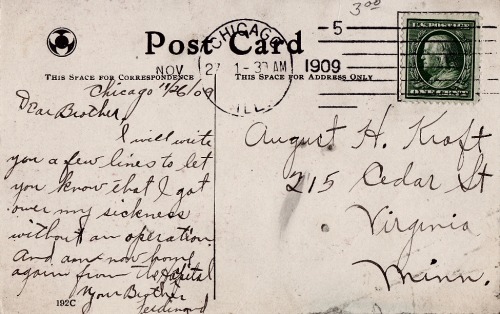 3 00
CHICAGO, ILL.
NOV 27 1-30 AM 1909
5
U.S. POSTAGE
ONE CENT
Post Card
THIS SPACE FOR CORRESPONDENCE
THIS SPACE FOR ADDRESS ONLY
Chicago 11/26/09
Dear Brother,
I will write
you a few lines to let
you know that I got
over my sickness
without an operation
And am now home
again from the Hospital
Your Brother
Ferdinand
192C
August H. Kraft
215 Cedar St
Virginia
Minn.